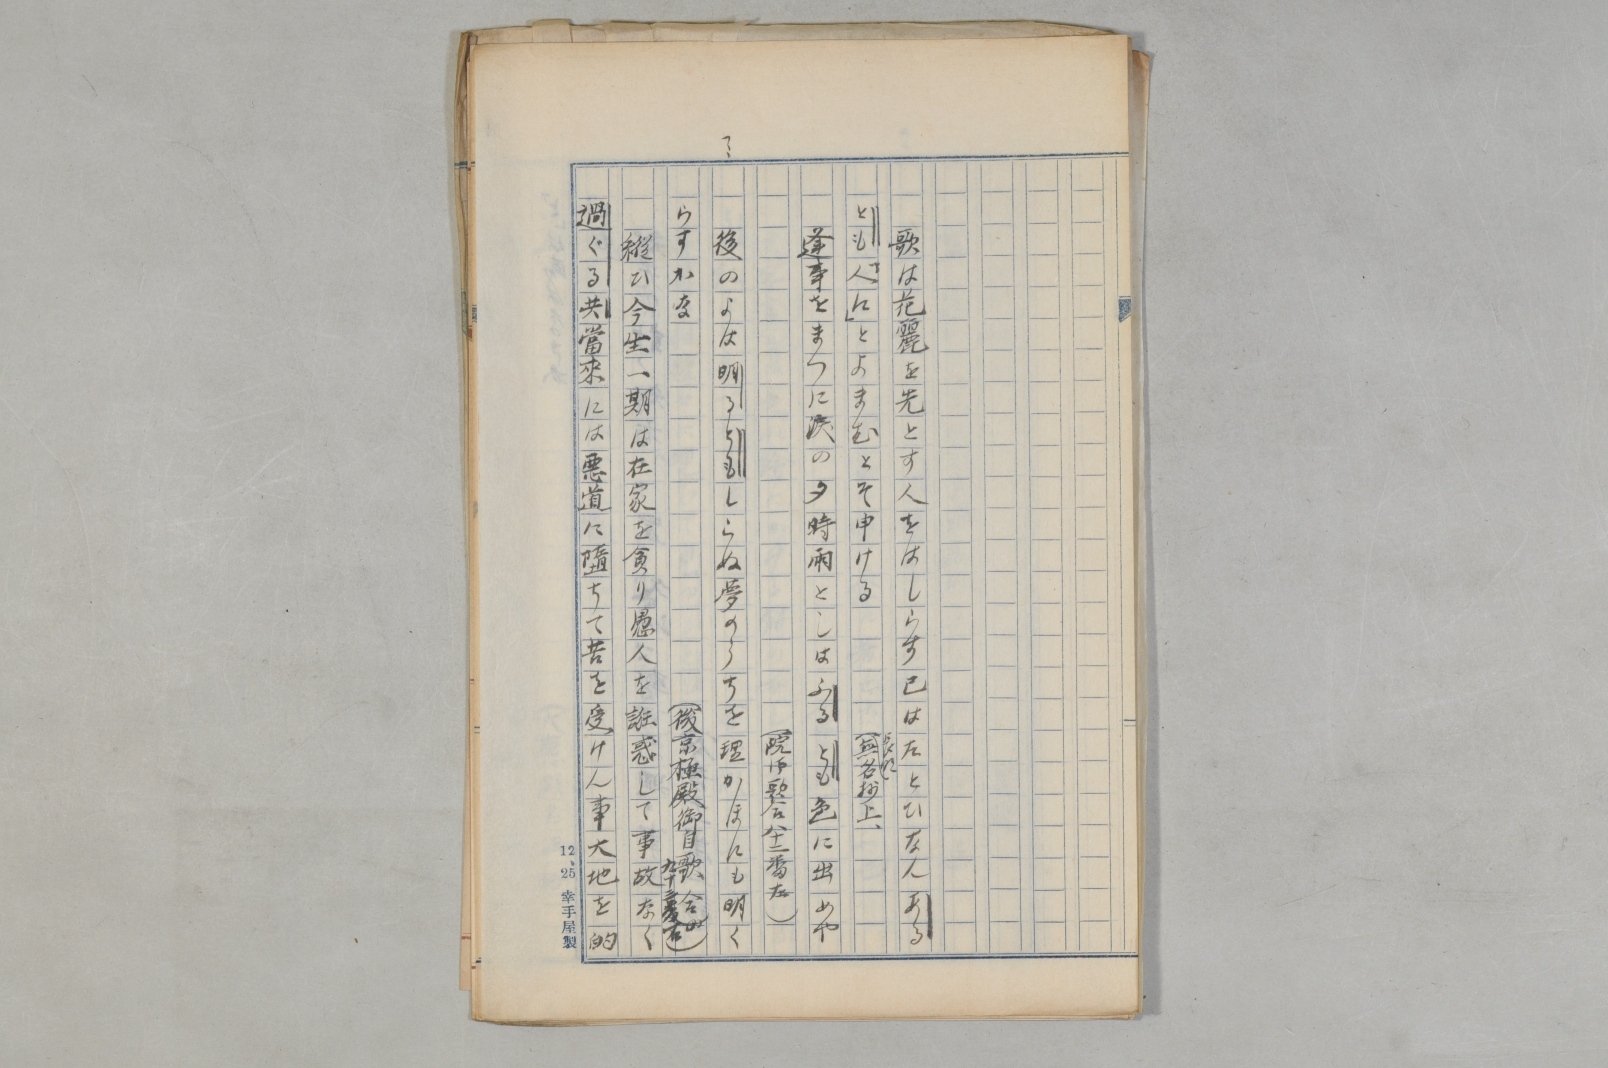 歌は花麗を先とす人をはしらす己はたとひな人ある
とも人に」とよまむとそ申ける
(無名抄上、
逢事をまつに涙の夕時雨としはふるとも色に出めや
(院御歌合八十二番左)
後のよは明るともしらぬ夢のうちを理かほにも明く
らすかな
(後京極殿御自歌合
九十三番右)
縦ひ今生一期は在家を貪り愚人を誑惑して事故なく
過ぐる共當來には悪道に墮ちて苦を受けん事大地を的
12、25 幸手屋製